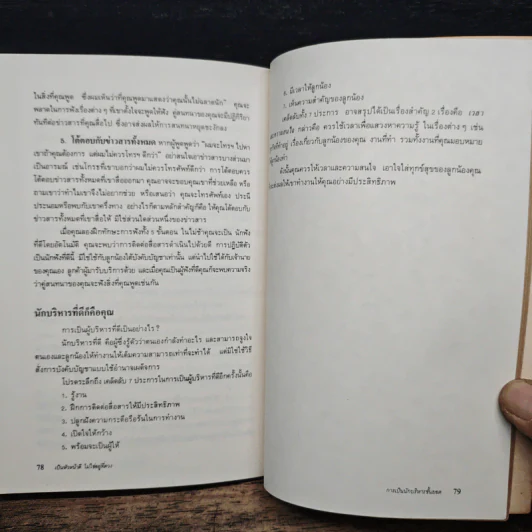 ในสิ่งที่คุณพูด ซึ่งผมเห็นว่าที่คุณพูดมาแสดงว่าคุณนั้นไม่ฉลาดนัก" คุณจะ
พลาดในการฟังเรื่องต่าง ๆ ที่เขาตั้งใจจะพูดให้ฟัง คู่สนทนาของคุณจะมีปฏิกิริยา
ทันต่อข่าวสารที่คุณสื่อไป ซึ่งอาจส่งผลให้การสนทนาหยุดชะงักลง
๕. โต้ตอบกับข่าวสารทั้งหมด หากผู้พูดพูดว่า "ผมจะโทรฯ ไปหา
เขาถ้าคุณต้องการ แต่ผมไม่ควรโทรฯ ดีกว่า" อย่าสนใจเอาข่าวสารบางส่วนมา
เป็นอารมณ์ เช่นโกรธที่เขาบอกว่าไม่ควรโทรศัพท์ดีกว่า การโต้ตอบควร
โต้ตอบกับข่าวสารทั้งหมดที่สื่อออกมา คุณอาจจะขอบคุณเขาที่ช่วยเหลือ หรือ
ถามเขาว่าทำไมเขาจึงไม่อยากช่วย หรือเสนอว่า คุณจะโทรศัพท์เอง ประนี
ประนอมหรือพบกับเขาครึ่งทาง อย่างไรก็ตามหลักสำคัญก็คือ ให้คุณโต้ตอบกับ
ข่าวสารทั้งหมดที่เขาสื่อให้ มิใช่ส่วนใดส่วนหนึ่งของข่าวสาร
เมื่อคุณลองฝึกทักษะการฟังทั้ง 5 ขั้นตอน ในไม่ช้าคุณจะเป็น นักฟัง
ที่ดีโดยอัตโนมัติ คุณจะพบว่าการติดต่อสื่อสารดำเนินไปด้วยดี การปฏิบัติตัว
เป็นนักฟังที่ดีนี้ มิใช่ใช้กับลูกน้องใต้บังคับบัญชาเท่านั้น แต่นำไปใช้ได้กับเจ้านาย
ของคุณเอง ลูกค้าผู้มารับบริการด้วย และเมื่อคุณเป็นผู้ฟังที่ดีคุณก็จะพบความจริง
ว่าคู่สนทนาของคุณจะฟังสิ่งที่คุณพูดเช่นกัน
นักบริหารที่ดีก็คือคุณ
การเป็นผู้บริหารที่ดีเป็นอย่างไร ?
นักบริหารที่ดี คือผู้ซึ่งรู้ตัวว่าตนเองกำลังทำอะไร และสามารถจูงใจ
ตนเองและลูกน้องให้ทำงานให้เต็มความสามารถเท่าที่จะทำได้ แต่มิใช่ใช้วิธี
สั่งการบังคับบัญชาแบบใช้อำนาจเผด็จการ
โปรดระลึกถึง เคล็ดลับ 7 ประการในการเป็นผู้บริหารที่ดีอีกครั้งนั่นคือ
1. รู้งาน
2. ฝึกการติดต่อสื่อสารให้มีประสิทธิภาพ
3. ปลูกฝังความกระตือรือร้นในการทำงาน
4. เปิดใจให้กว้าง
5. พร้อมจะเป็นผู้ให้
78 เป็นหัวหน้าดี ไม่ใช่อยู่ที่ดวง
6. มีเวลาให้ลูกน้อง
7. เห็นความสำคัญของลูกน้อง
เคล็ดลับทั้ง 7 ประการ อาจสรุปได้เป็นเรื่องสำคัญ 2 เรื่องคือ เวลา
สนใจ กล่าวคือ ควรใช้เวลาเพื่อแสวงหาความรู้ ในเรื่องต่างๆ เช่น
เรื่องเกี่ยวกับลูกน้องของคุณ งานที่ทำ รวมทั้งงานที่คุณมอบหมาย
ดังนั้นคุณควรให้เวลาและความสนใจ เอาใจใส่ทุกข์สุขของลูกน้องคุณ
ให้เขาทำงานให้คุณอย่างมีประสิทธิภาพ
การเป็นนักบริหารชั้นยอด 79